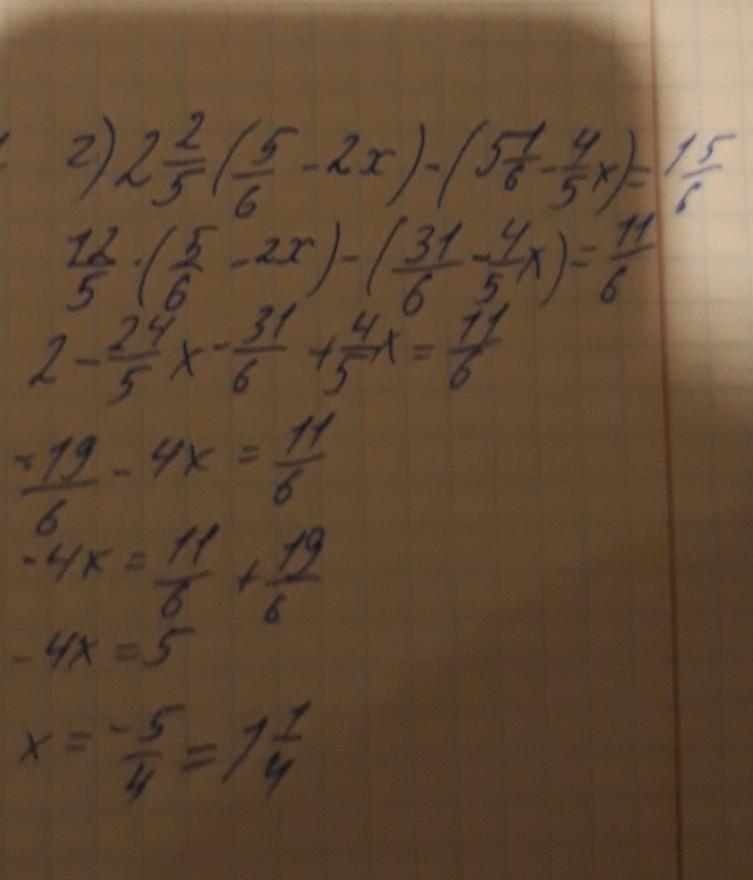 г) 2 2/5 (5/6 - 2x) - (5 1/6 - 4/5 x) = 1 5/6
12/5 · (5/6 - 2x) - (31/6 - 4/5 x) = 11/6
2 - 24/5 x - 31/6 + 4/5 x = 11/6
-19/6 - 4x = 11/6
-4x = 11/6 + 19/6
-4x = 5
x = -5/4 = 1 1/4